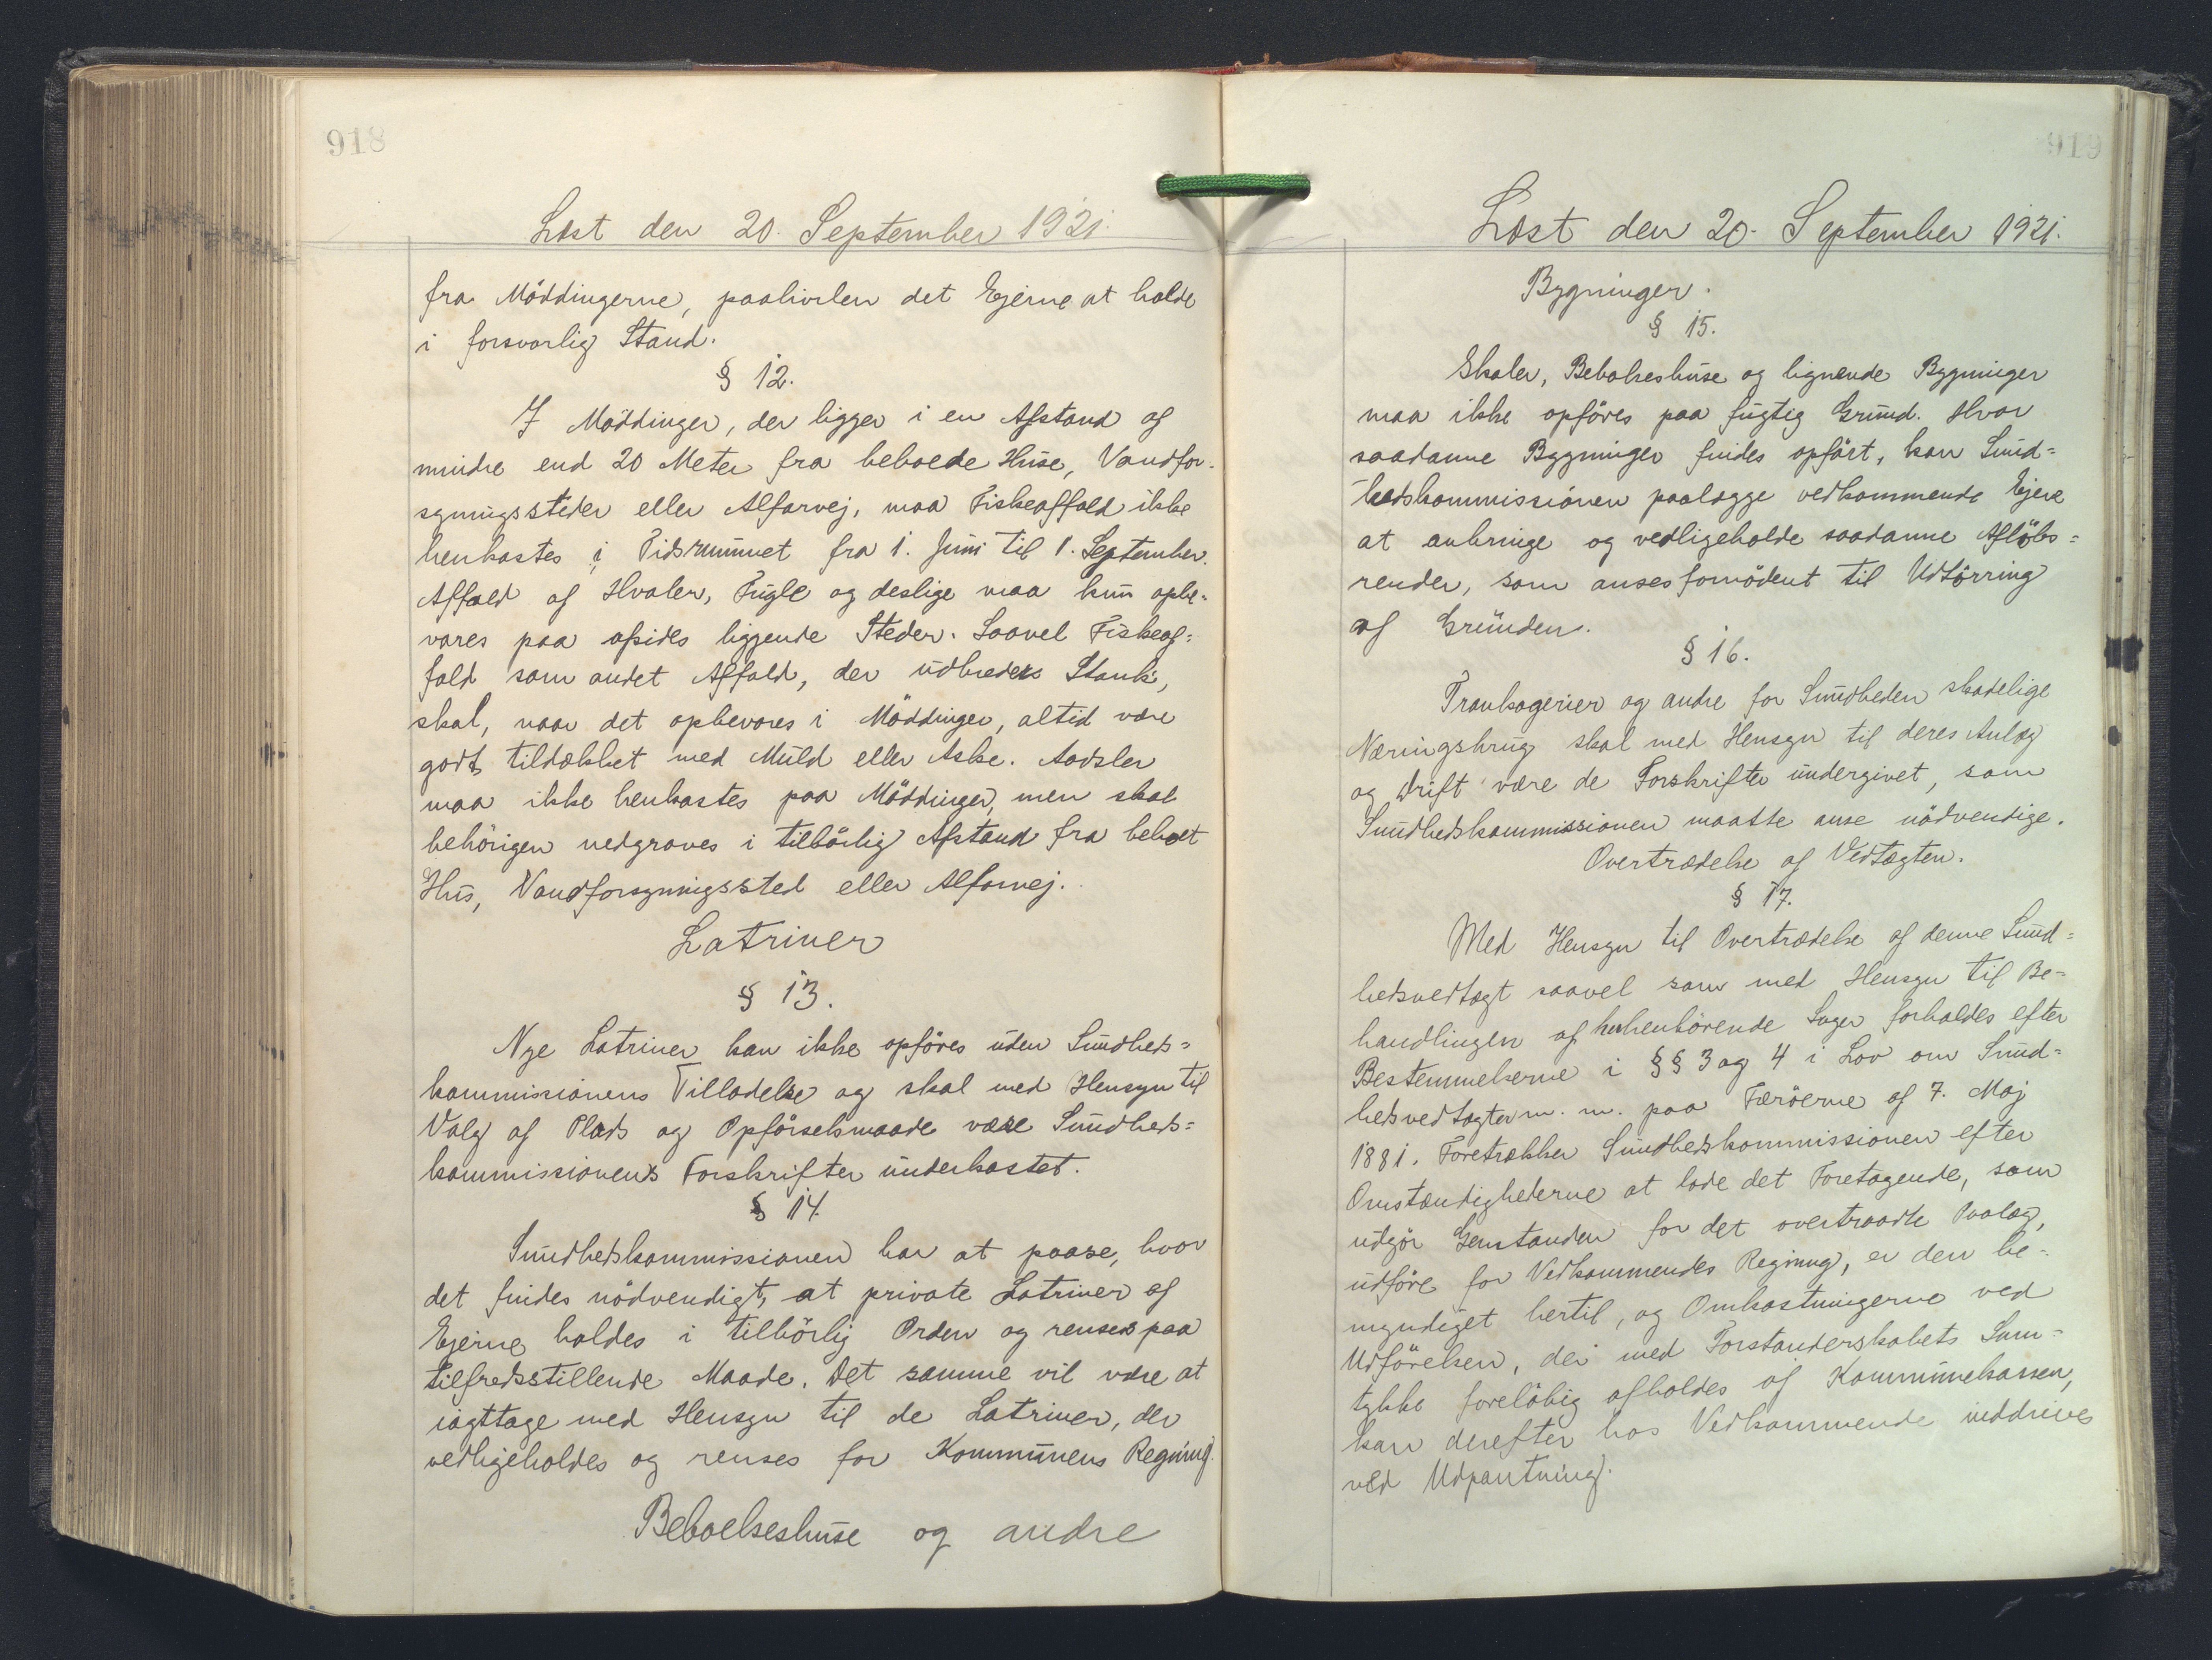 918
Læst den 20. September 1921.
fra Møddingerne, paahviler det Ejerne at holde
i forsvarlig Stand.
§ 12.
I Møddinger, der ligger i en Afstand af
mindre end 20 Meter fra beboede Huse, Vandfor-
syningssteder eller Alfarvej, maa Fiskeaffald ikke
henkastes i Tidsrummet fra 1. Juni til 1. September.
Affald af Hvaler, Fugle og deslige maa kun opbe-
vares paa afsides liggende Steder. Saavel Fiskeaf=
fald som andet Affald, der udbreder Stank,
skal, naar det opbevares i Møddinger, altid være
godt tildækket med Muld eller Aske. Aadsler
maa ikke henkastes paa Møddinger, men skal
behørigen nedgraves i tilbørlig Afstand fra beboet
Hus, Vandforsyningssted eller Alfarvej.
Latriner
§ 13.
Nye Latriner kan ikke opføres uden Sundheds=
kommissionens Tilladelse og skal med Hensyn til
Valg af Plads og Opførselsmaade være Sundheds=
kommissionens Forskrifter underkastet.
§ 14.
Sundhedskommissionen har at paase, hvor
det findes nødvendigt, at private Latriner af
Ejerne holdes i tilbørlig Orden og renses paa
tilfredsstillende Maade. Det samme vil være at
iagttage med Hensyn til de Latriner, der
vedligeholdes og renses for Kommunens Regning.
Beboelseshuse og andre
919
Læst den 20. September 1921.
Bygninger.
§ 15.
Skoler, Beboelseshuse og lignende Bygninger
maa ikke opføres paa fugtig Grund. Hvor
saadanne Bygninger findes opført, kan Sund=
hedskommissionen paalægge vedkommende Ejere
at anbringe og vedligeholde saadanne Afløbs=
render, som anses fornødent til Udtørring
af Grunden.
§ 16.
Trankogerier og andre for Sundheden skadelige
Næringsbrug skal med Hensyn til deres Anlæg
og Drift være de Forskrifter undergivet, som
Sundhedskommissionen maatte anse nødvendige.
Overtrædelse af Vedtægten.
§ 17.
Med Hensyn til Overtrædelse af denne Sund=
hedsvedtægt saavel som med Hensyn til Be=
handlingen af herhenhørende Sager forholdes efter
Bestemmelserne i §§ 3 og 4 i Lov om Sund=
hedsvedtægter m. m. paa Færøerne af 7. Maj
1881. Foretrækker Sundhedskommissionen efter
Omstændighederne at lade det Foretagende, som
udgør Genstanden for det overtraadte Paalæg,
udføre for Vedkommendes Regning, er den be=
myndiget hertil, og Omkostningerne ved
Udførelsen, der med Forstanderskabets Sam=
tykke foreløbig afholdes af Kommunekassen,
kan derefter hos Vedkommende inddrives
ved Udpantning.